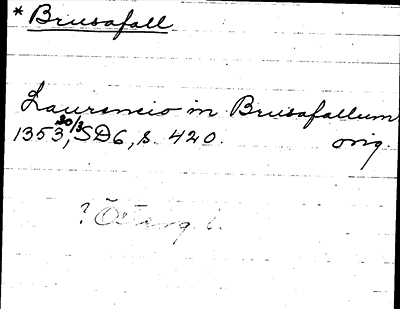 * Brusafall
Laurencio in Brusafallum
1353 30/3, SD6, s. 420. orig.